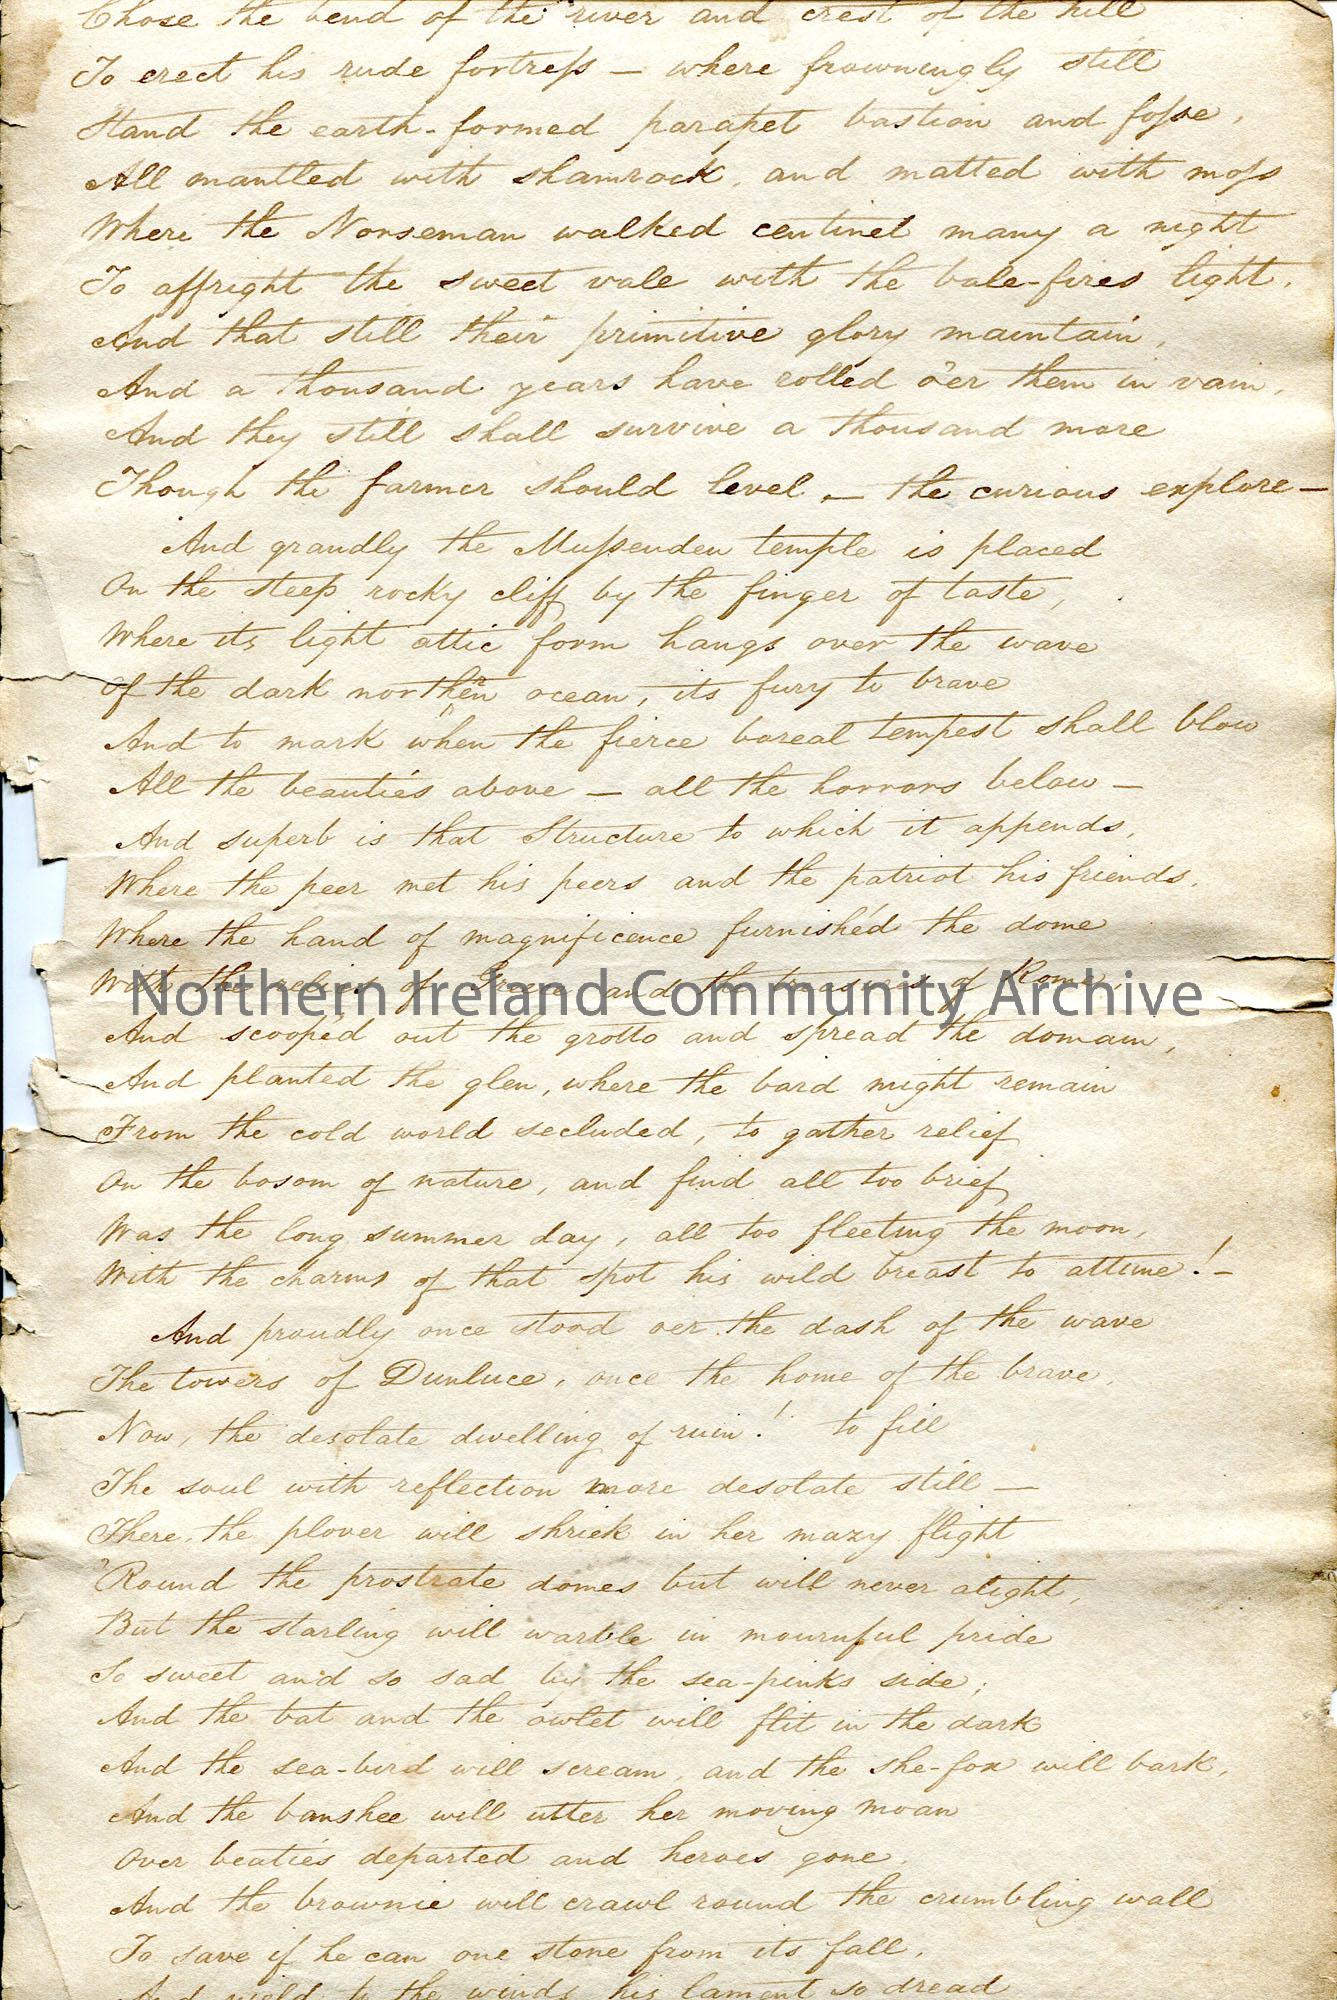 Chose the bend of the river and crest of the hill
To erect his rude fortress — where frowningly still
Stand the earth-formed parapet bastion and fosse,
All mantled with shamrock, and matted with moss
Where the Norseman walked centinel many a night
To affright the sweet vale with the bale-fires light,
And that still their primitive glory maintain,
And a thousand years have rolled o'er them in vain,
And they still shall survive a thousand more
Though the farmer should level, — the curious explore —
And grandly the Mussenden temple is placed
On the steep rocky cliff by the finger of taste,
Where its light attic form hangs over the wave
Of the dark northern ocean, its fury to brave
And to mark when the fierce boreal tempest shall blow
All the beauties above — all the horrors below —
And superb is that Structure to which it appends,
Where the peer met his peers and the patriot his friends.
Where the hand of magnificence furnish'd the dome
With the relics of Greece and the treasures of Rome,
Northern Ireland Community Archive
And scoop'd out the grotto and spread the domain,
And planted the glen, where the bard might remain
From the cold world secluded, to gather relief
On the bosom of nature, and find all too brief
Was the long summer day, all too fleeting the moon,
With the charms of that spot his wild breast to attune! —
And proudly once stood oer the dash of the wave
The towers of Dunluce, once the home of the brave,
Now, the desolate dwelling of ruin! to fill
The soul with reflection more desolate still —
There, the plover will shriek in her mazy flight
'Round the prostrate domes but will never alight,
But the starling will warble in mournful pride
So sweet and so sad by the sea-pinks side;
And the bat and the owlet will flit in the dark
And the sea-bird will scream, and the she-fox will bark,
And the banshee will utter her moving moan
Over beaties departed and heroes gone.
And the brownie will crawl round the crumbling wall
To save if he can one stone from its fall,
And yield to the winds his lament so dread